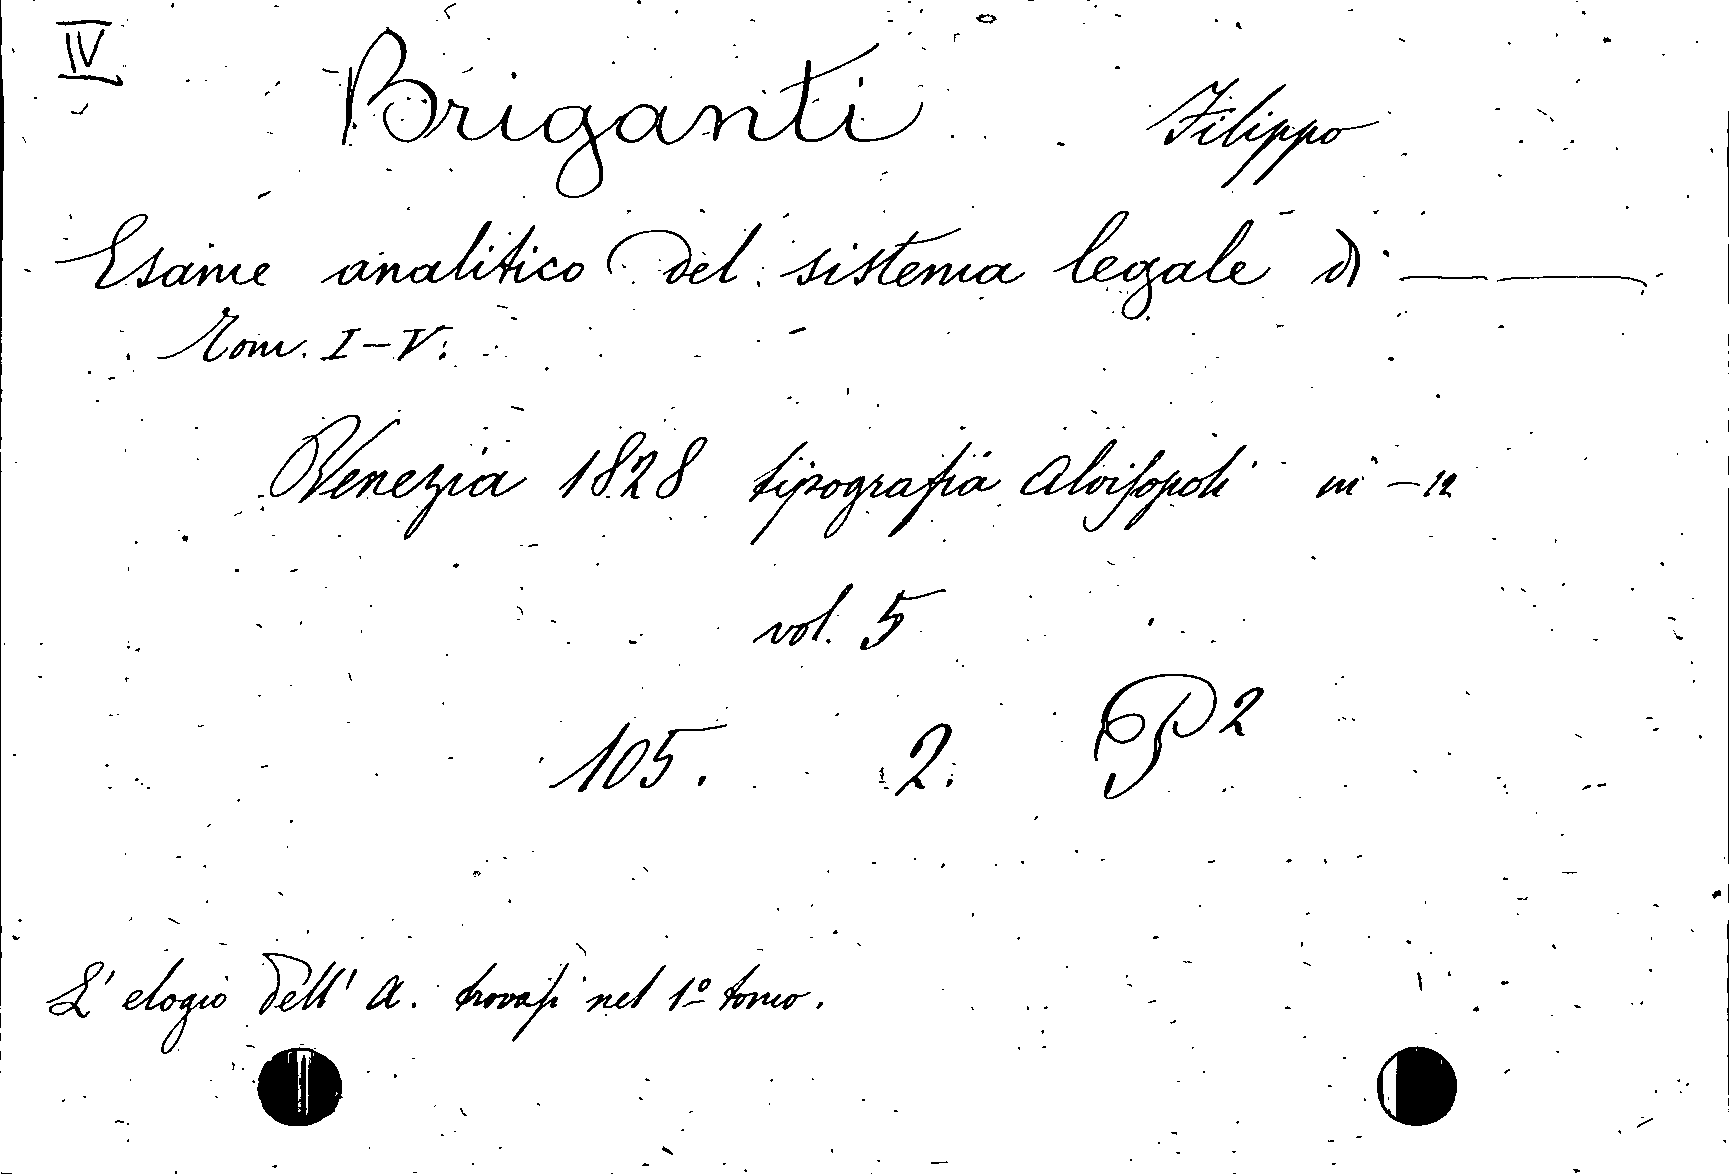 IV
Briganti Filippo
Esame analitico del sistema legale di — —
Tom. I-V.
Venezia 1828 tipografia Alvisopoli in -12
vol. 5
105. 2. P2
L' elogio dell' A. trovasi nel 1º tomo.